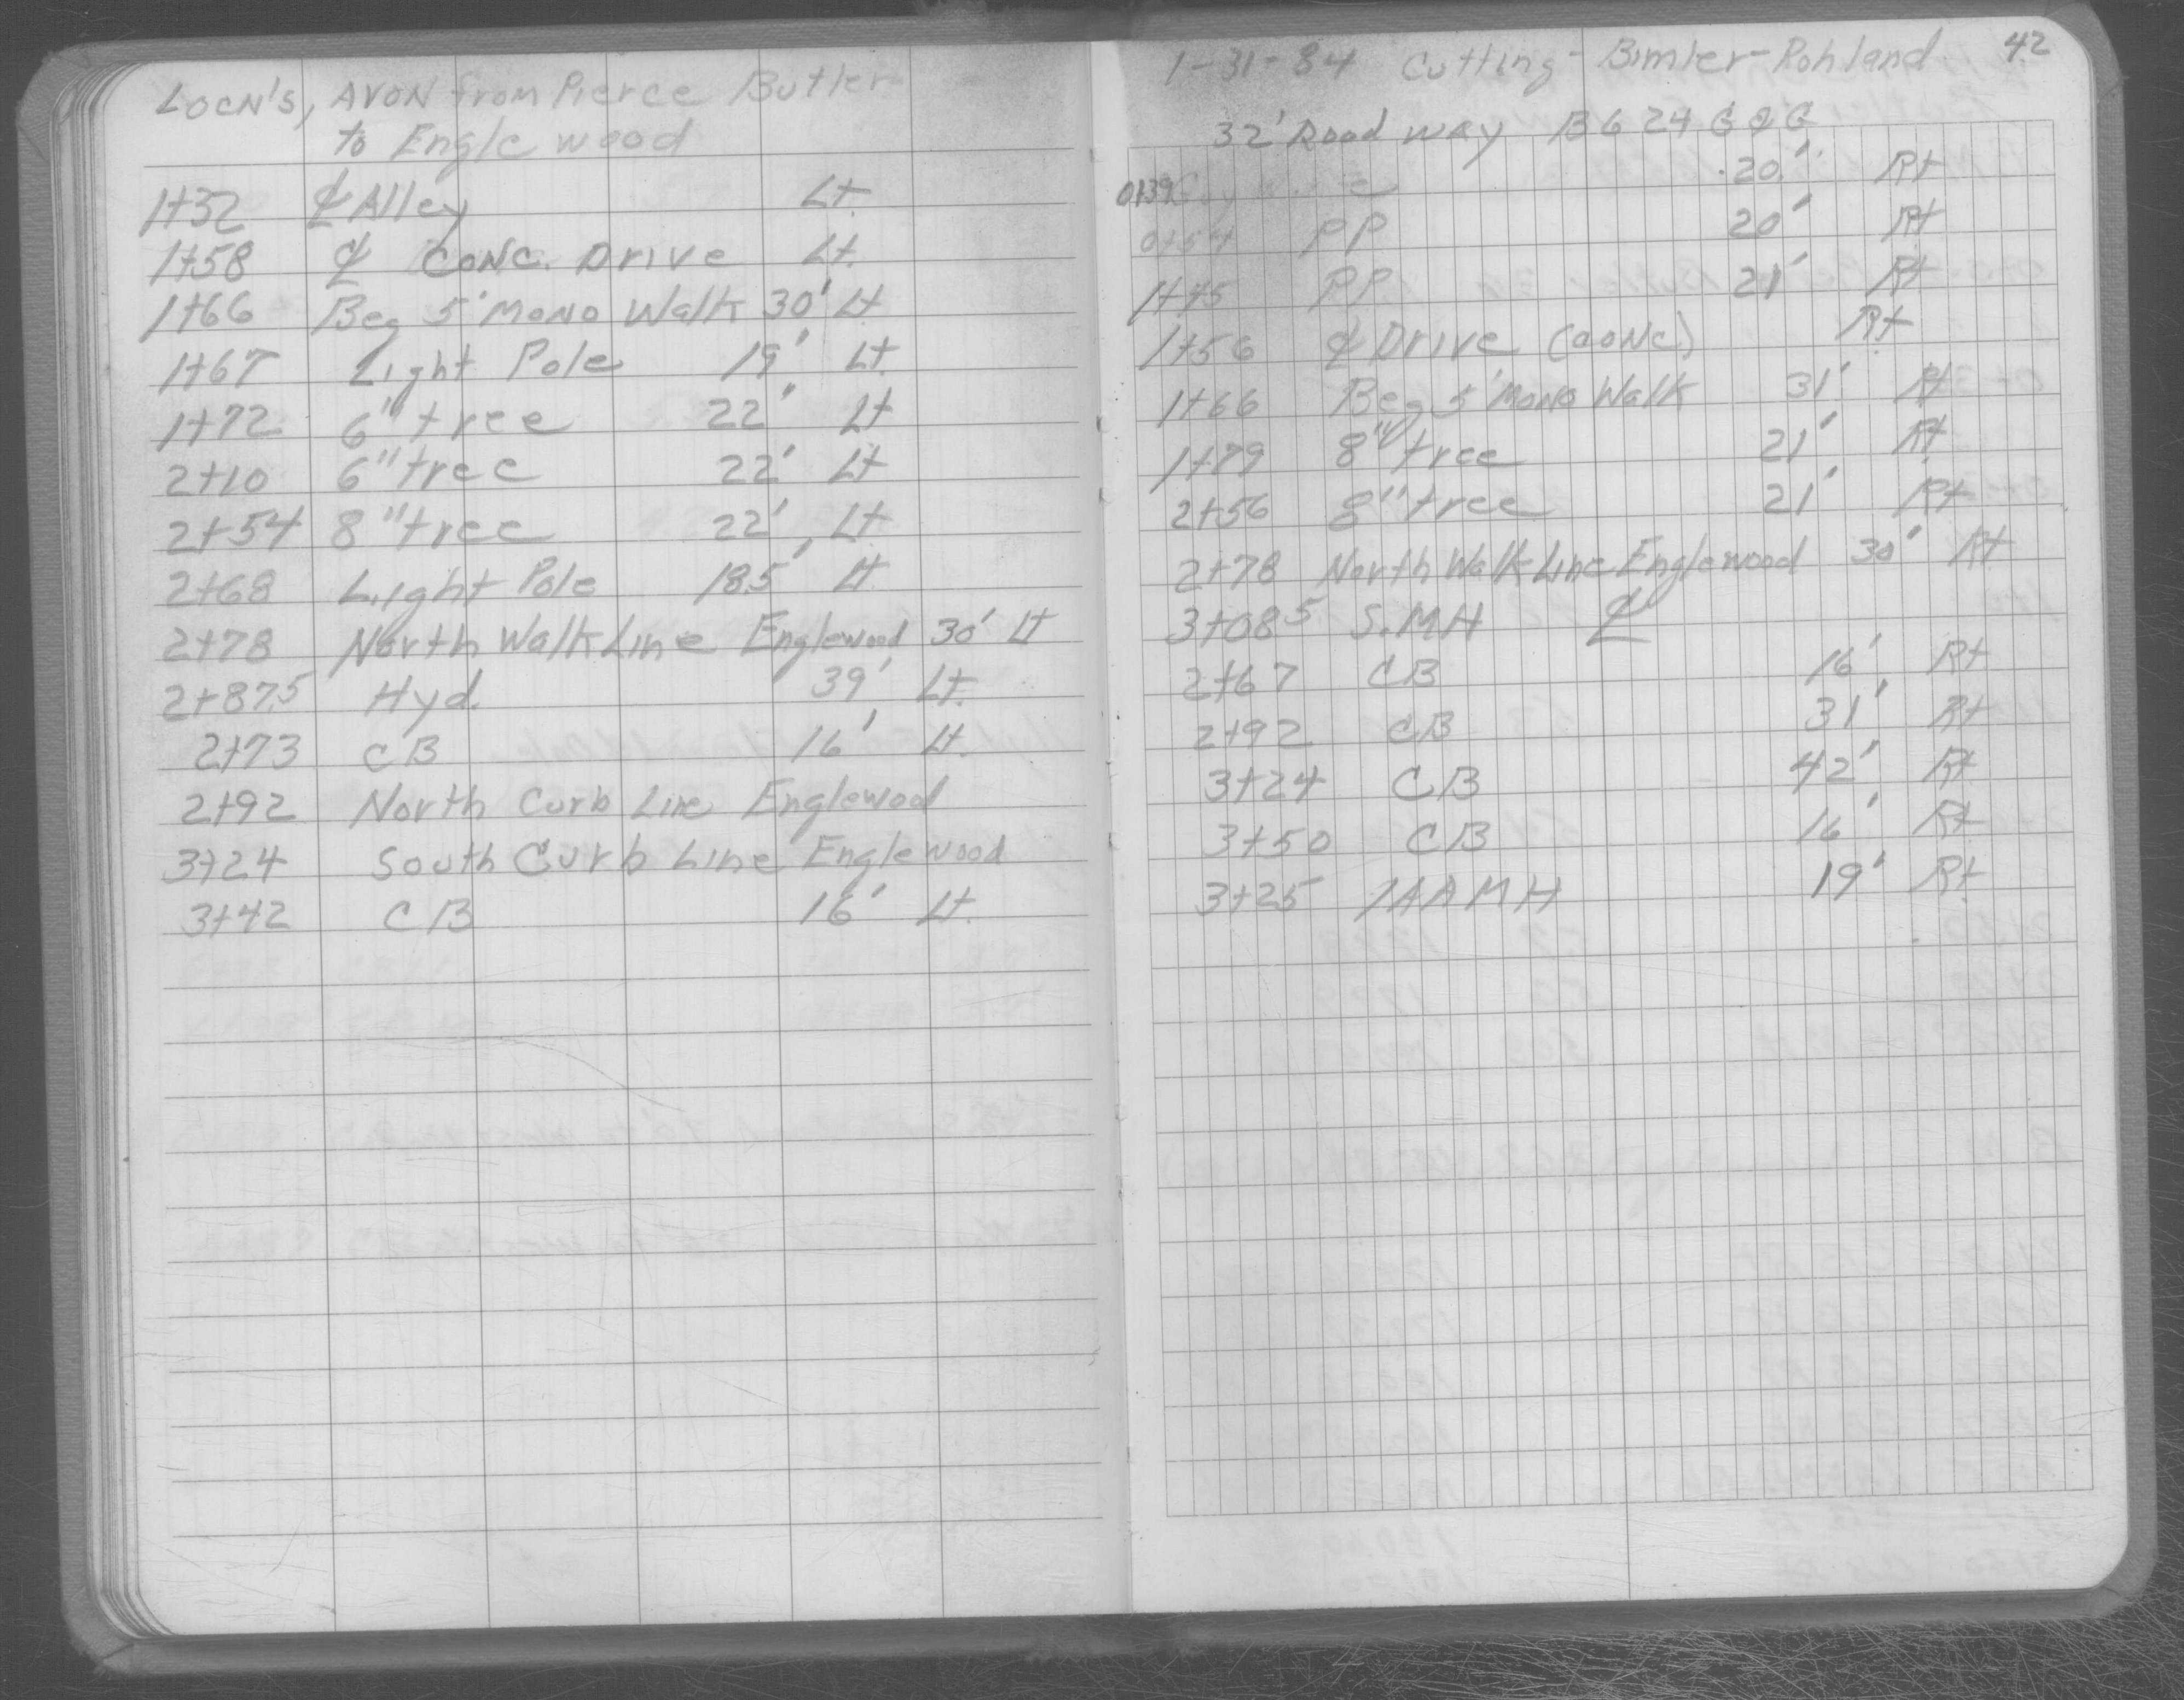 LOCN'S, AVON from Pierce Butler
to Englewood
1+32 ℄ Alley Lt.
1+58 ℄ CONC. Drive Lt.
1+66 Beg 5' MONO Walk 30' Lt
1+67 Light Pole 19' Lt.
1+72 6" tree 22' Lt
2+10 6" tree 22' Lt
2+54 8" tree 22' Lt.
2+68 Light Pole 18.5' Lt
2+78 North Walk Line Englewood 30' Lt
2+87.5 Hyd. 39' Lt.
2+73 CB 16' Lt.
2+92 North Curb Line Englewood
3+24 South Curb Line Englewood
3+42 CB 16' Lt.
1-31-84 Cutting - Bimler - Rohland 42
32' Roadway B624 C&G
0+39 Guy 20' Rt
0+54 PP 20' Rt
1+45 PP 21' Rt
1+56 ℄ Drive (CONC) Rt
1+66 Beg 5' MONO Walk 31' Rt
1+79 8" tree 21' Rt
2+56 8" tree 21' Rt
2+78 North Walk Line Englewood 30' Rt
3+08.5 S.MH ℄
2+67 CB 16' Rt
2+92 CB 31' Rt
3+24 CB 42' Rt
3+50 CB 16' Rt
3+25 MH 19' Rt